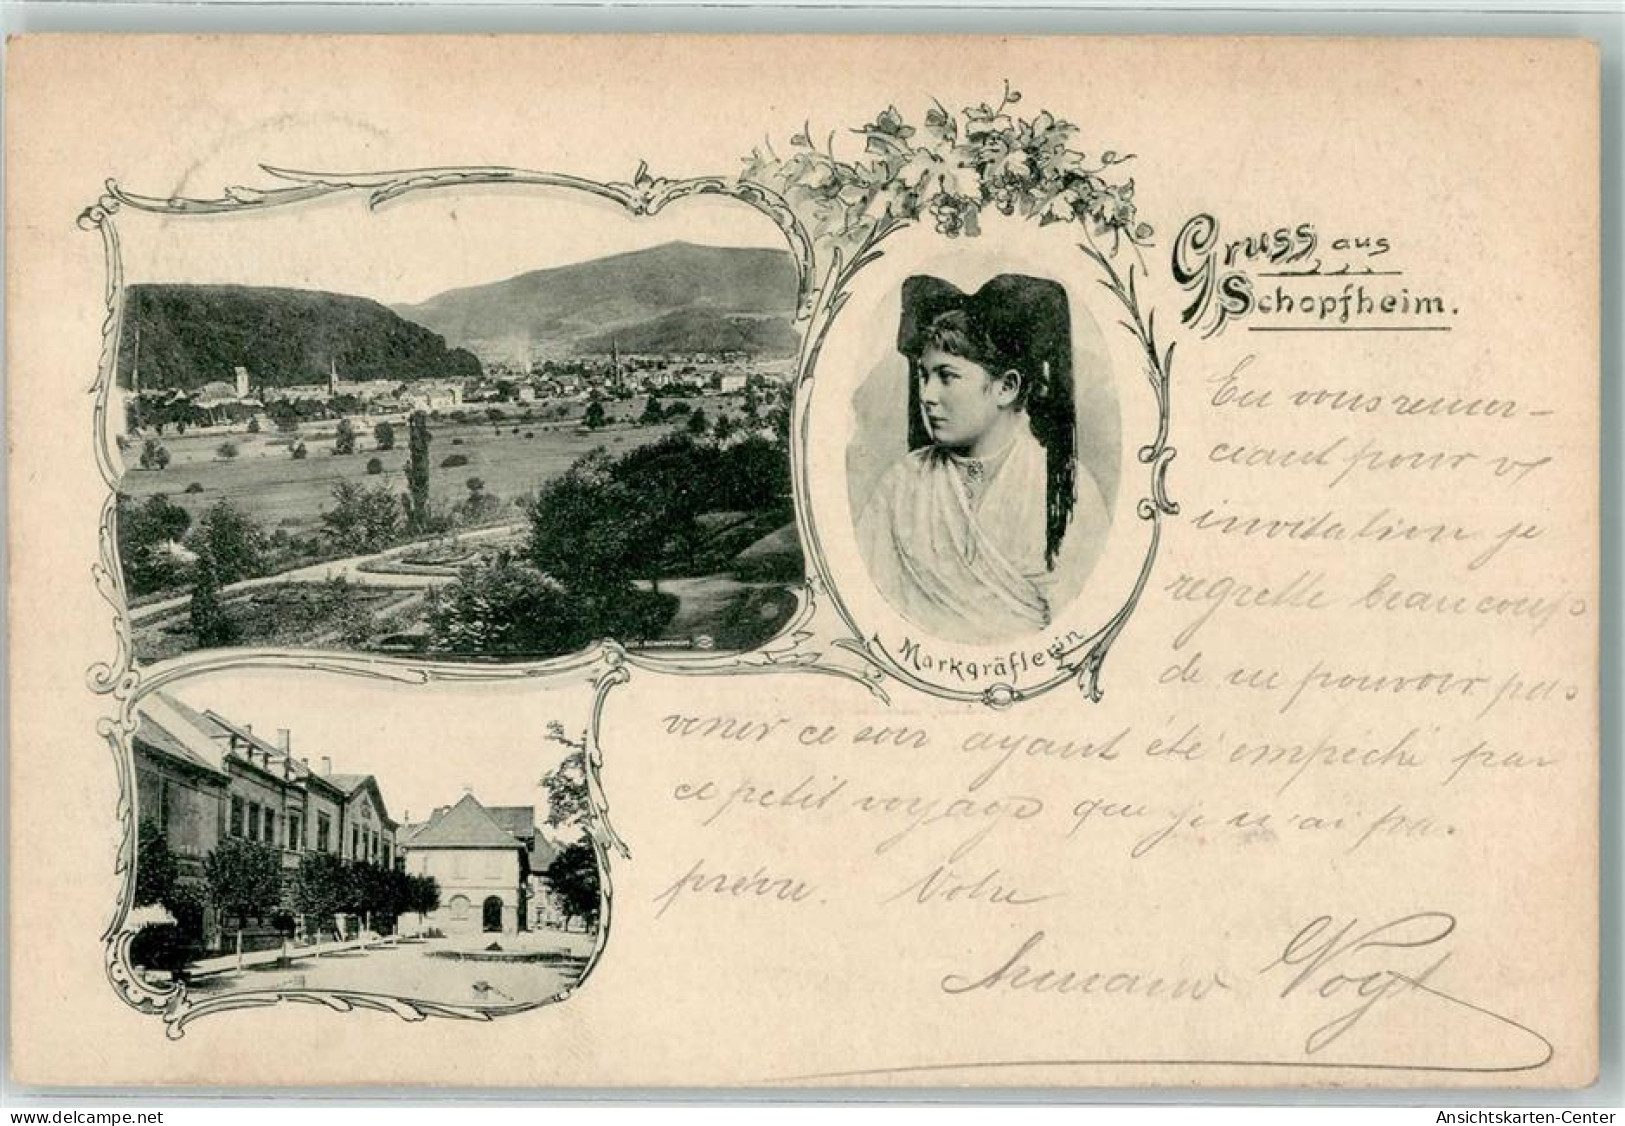 Gruss aus
Schopfheim.
Markgräflerin
En vous remer-
ciant pour vx
invitation je
regrette beaucoup
de ne pouvoir pas
venir ce soir ayant été empêché par
ce petit voyage que je n'ai pas
prévu. Votre
Armand Vogt
www.delcampe.net
Ansichtskarten-Center